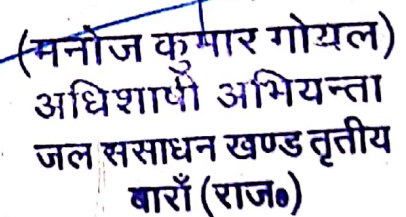 (मनोज कुमार गोयल)
अधिशाषी अभियन्ता
जल ससाधन खण्ड तृतीय
बाराँ (राज०)